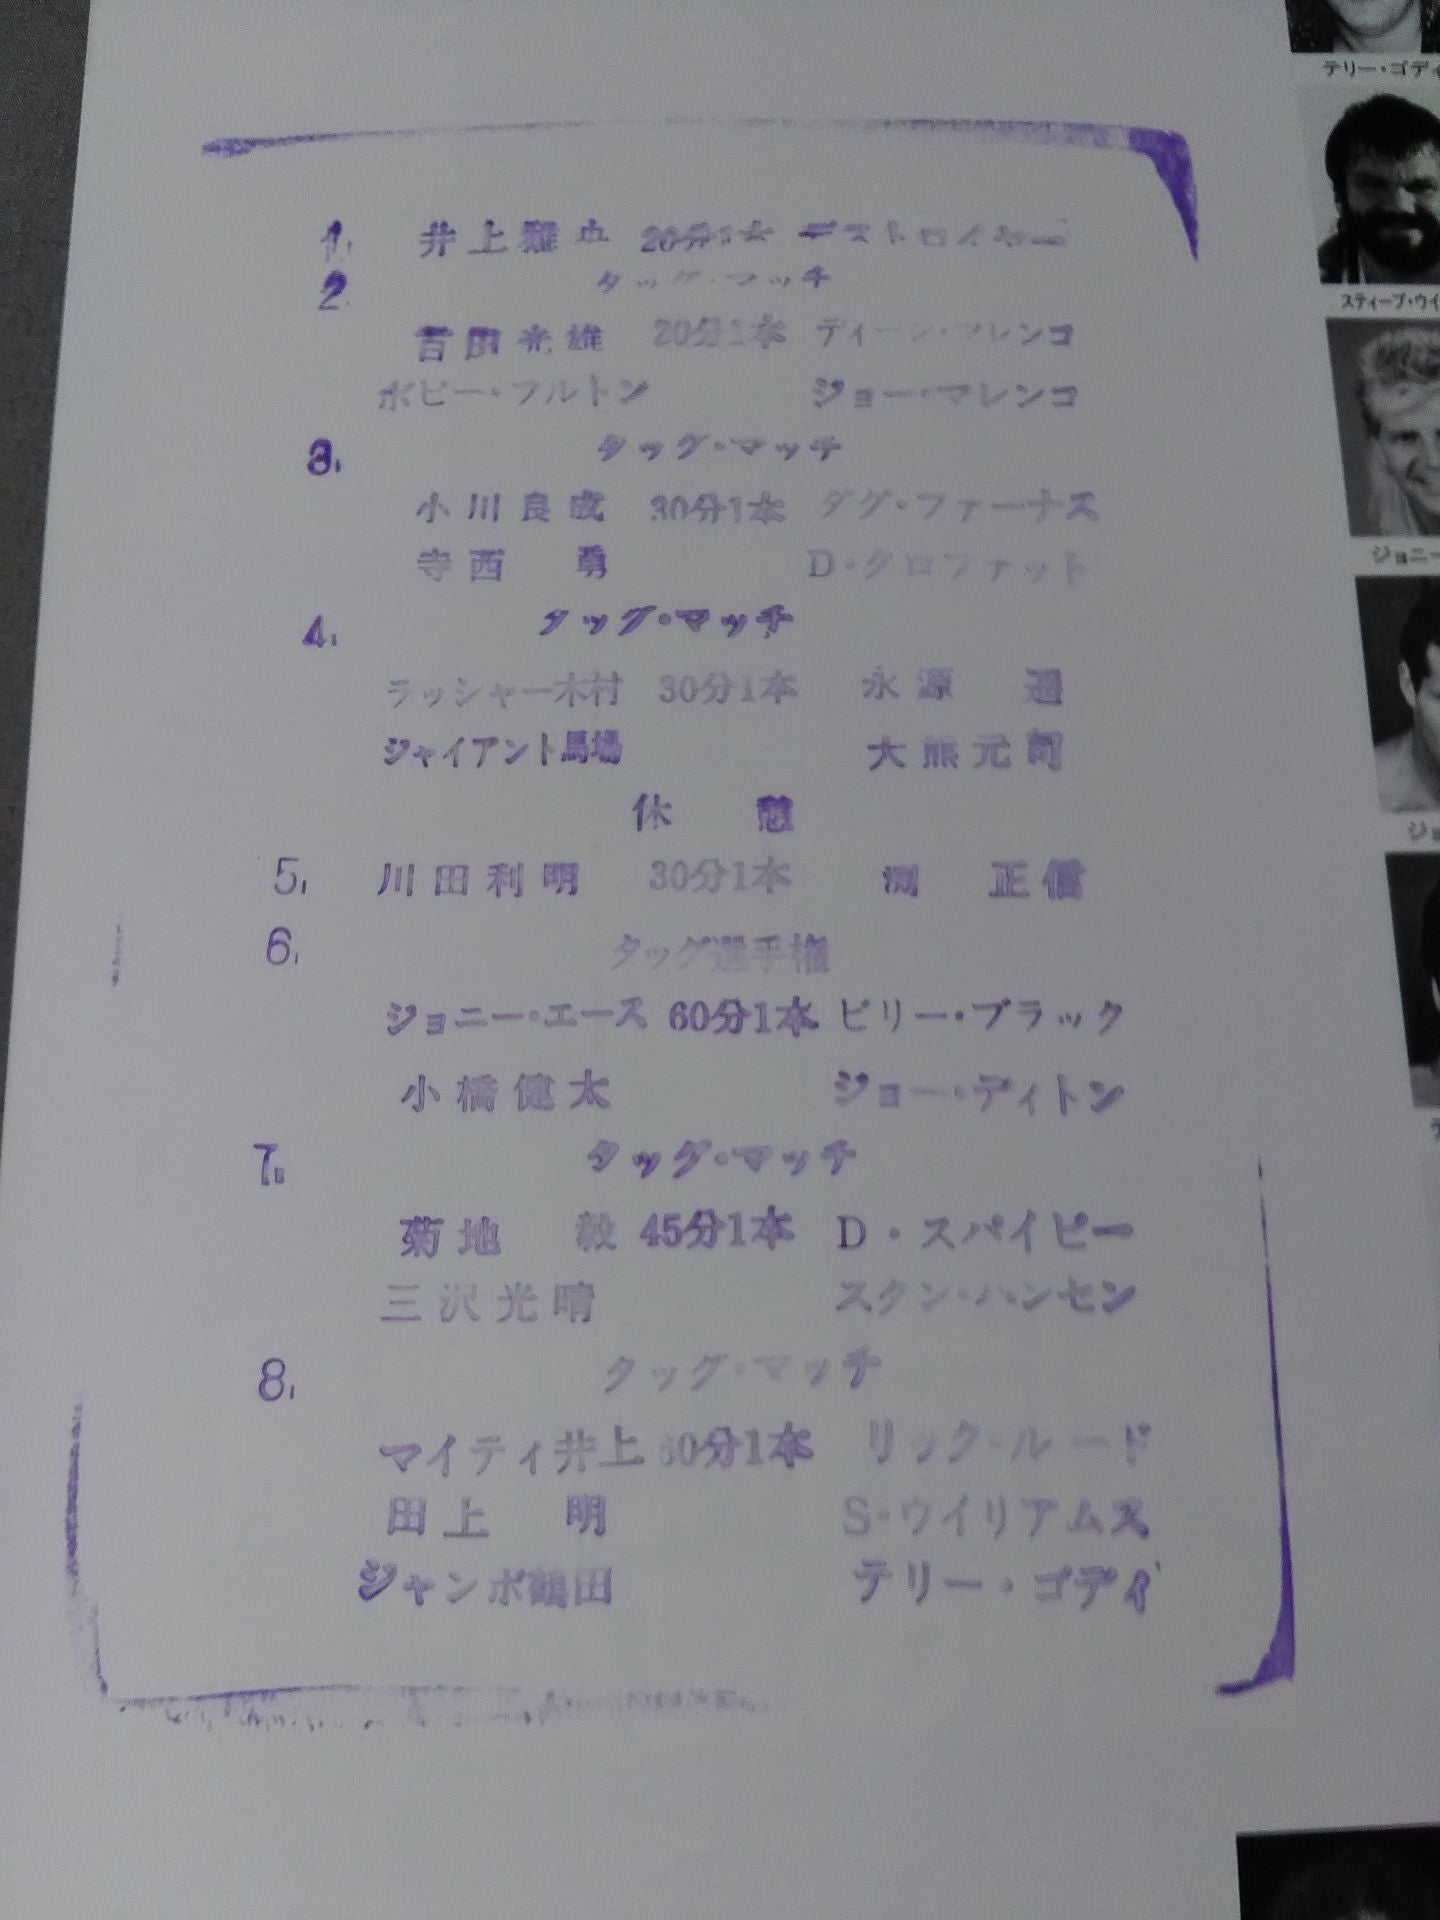 1. 井上雅央 20分1本 デストロイヤー
2. タッグ・マッチ
吉田光雄 20分1本 ディーン・マレンコ
ボビー・フルトン ジョー・マレンコ
3. タッグ・マッチ
小川良成 30分1本 ダグ・ファーナス
寺西 勇 D・クロファット
4. タッグ・マッチ
ラッシャー木村 30分1本 永源 遥
ジャイアント馬場 大熊元司
休 憩
5. 川田利明 30分1本 渕 正信
6. タッグ選手権
ジョニー・エース 60分1本 ビリー・ブラック
小橋健太 ジョー・ディトン
7. タッグ・マッチ
菊地 毅 45分1本 D・スパイビー
三沢光晴 スタン・ハンセン
8. タッグ・マッチ
マイティ井上 60分1本 リック・ルード
田上 明 S・ウイリアムス
ジャンボ鶴田 テリー・ゴディ
テリー・ゴディ
スティーブ・ウイ
ジョニー
ジョ